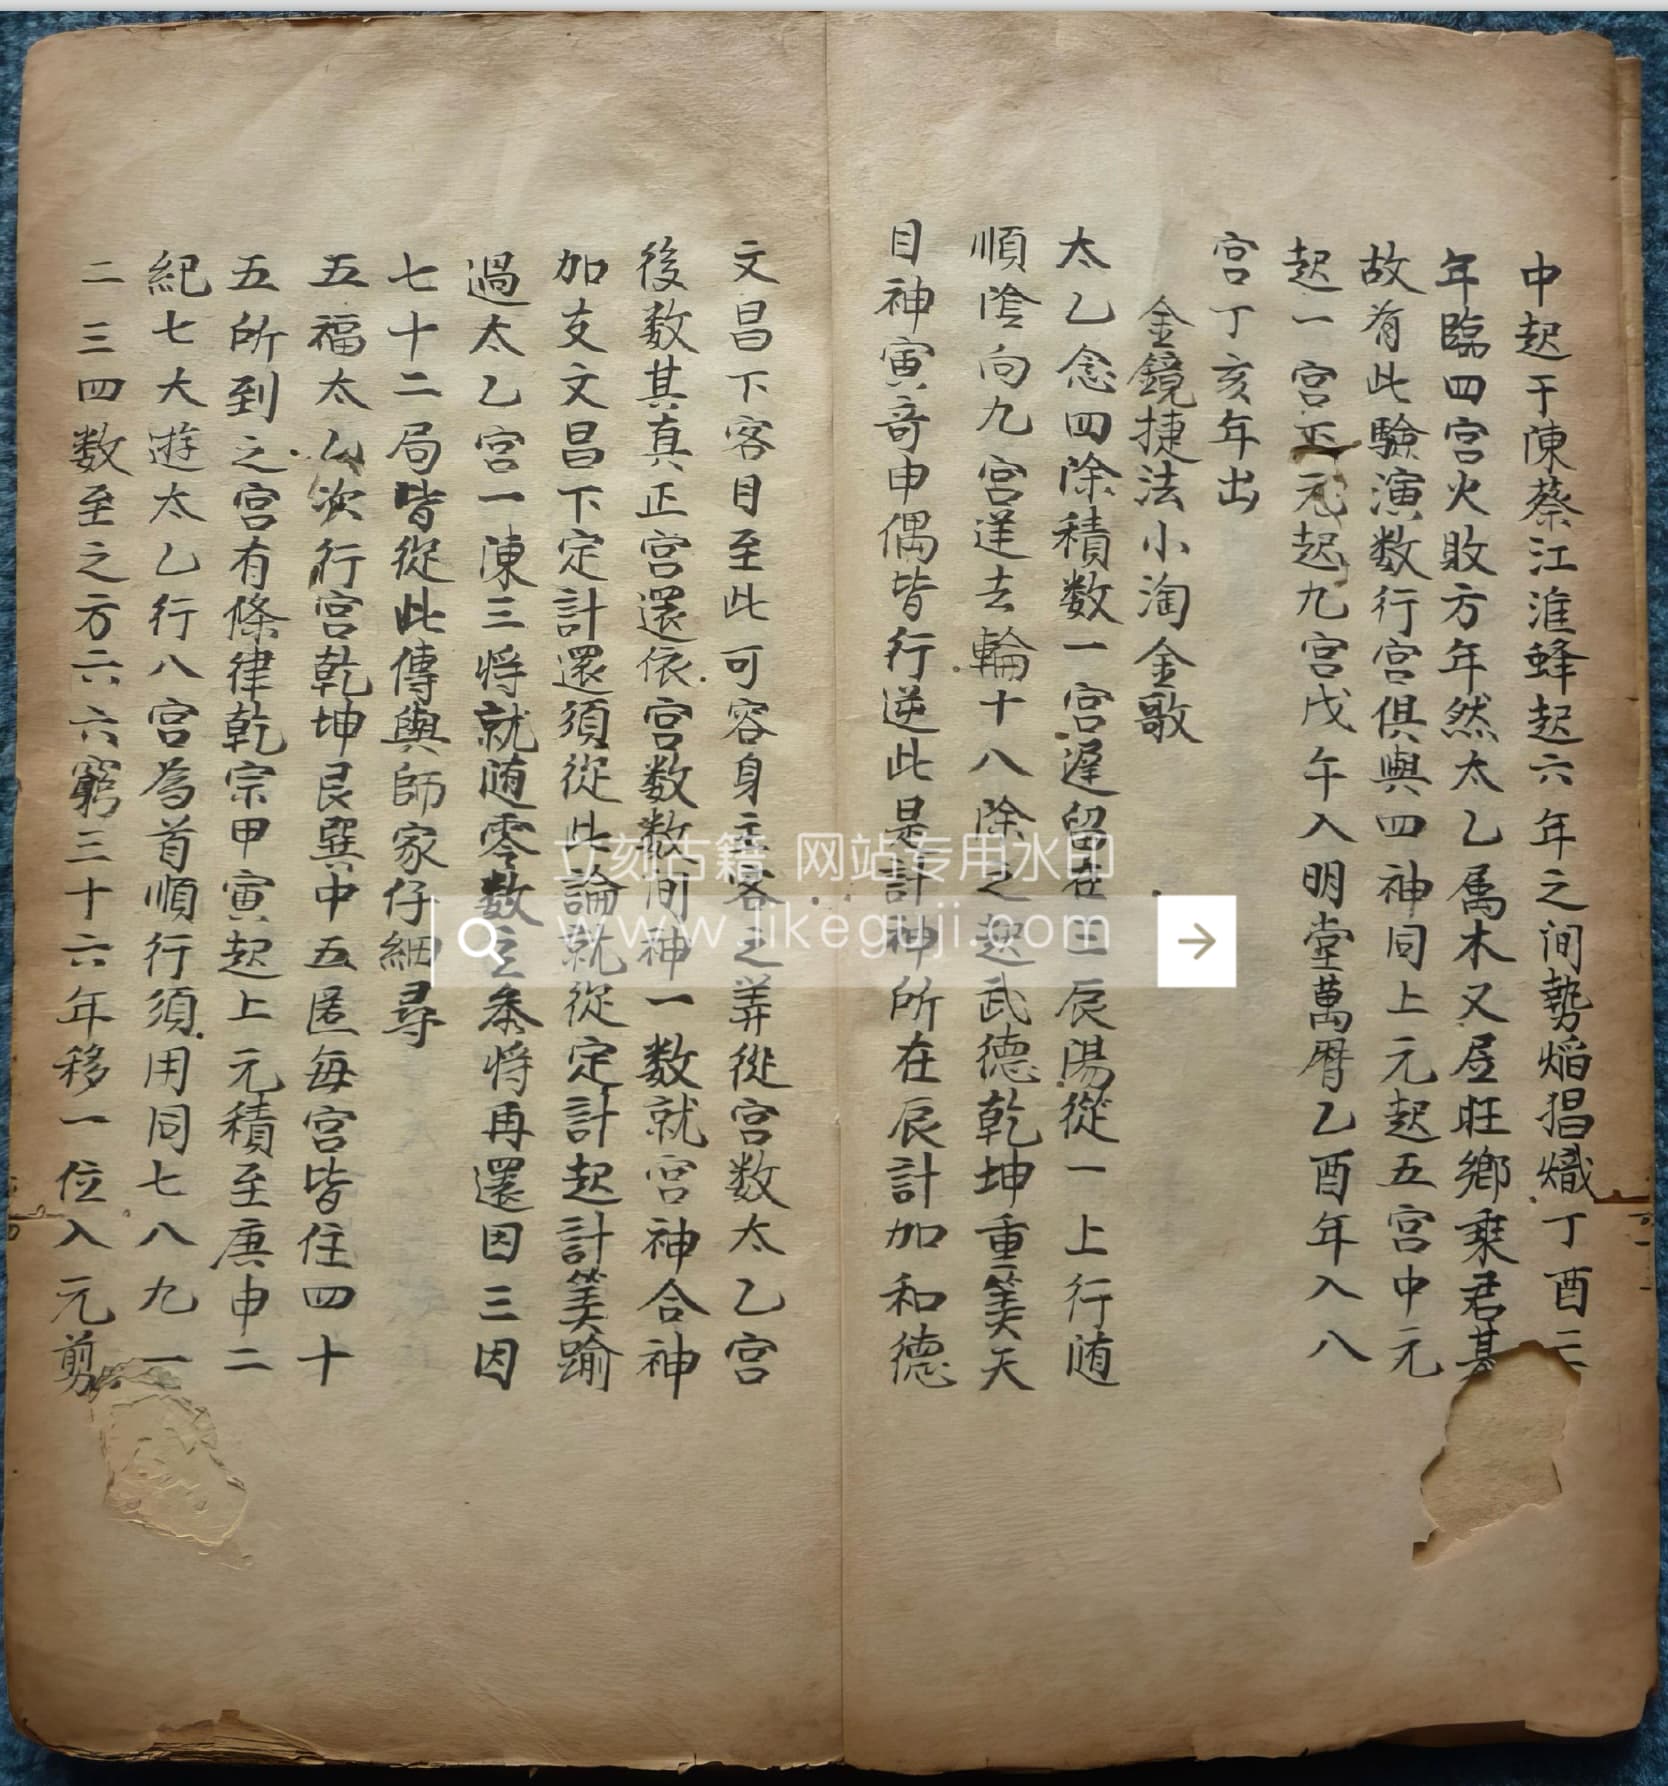 中起于陳蔡江淮蜂起六年之间勢焰猖熾丁酉三
年臨四宮火敗方年然太乙属木又居旺鄉乘君基
故有此驗演数行宮俱與四神同上元起五宮中元
起一宮正元起九宮戊午入明堂萬曆乙酉年入八
宮丁亥年出
金鏡捷法小淘金歌
太乙念四除積数一宮遲留在三辰陽從一上行随
順陰向九宮逆去輪十八除之起武德乾坤重筭天
目神寅竒申偶皆行逆此是計神所在辰計加和德
文昌下客目至此可容身主客之筭從宮数太乙宮
後数其真正宮還依宮数数间神一数就宮神合神
加支文昌下定計還須從此論就從定計起計筭踰
過太乙宮一陳三将就随零数立叅将再還因三因
七十二局皆從此傳與師家仔細尋
五福太乙次行宮乾坤艮巽中五匿每宮皆住四十
五所到之宮有條律乾宗甲寅起上元積至庚申二
紀七大遊太乙行八宮為首順行須用同七八九一
二三四数至之方六六六窮三十六年移一位入元剪
立刻古籍 网站专用水印
www.likeguji.com